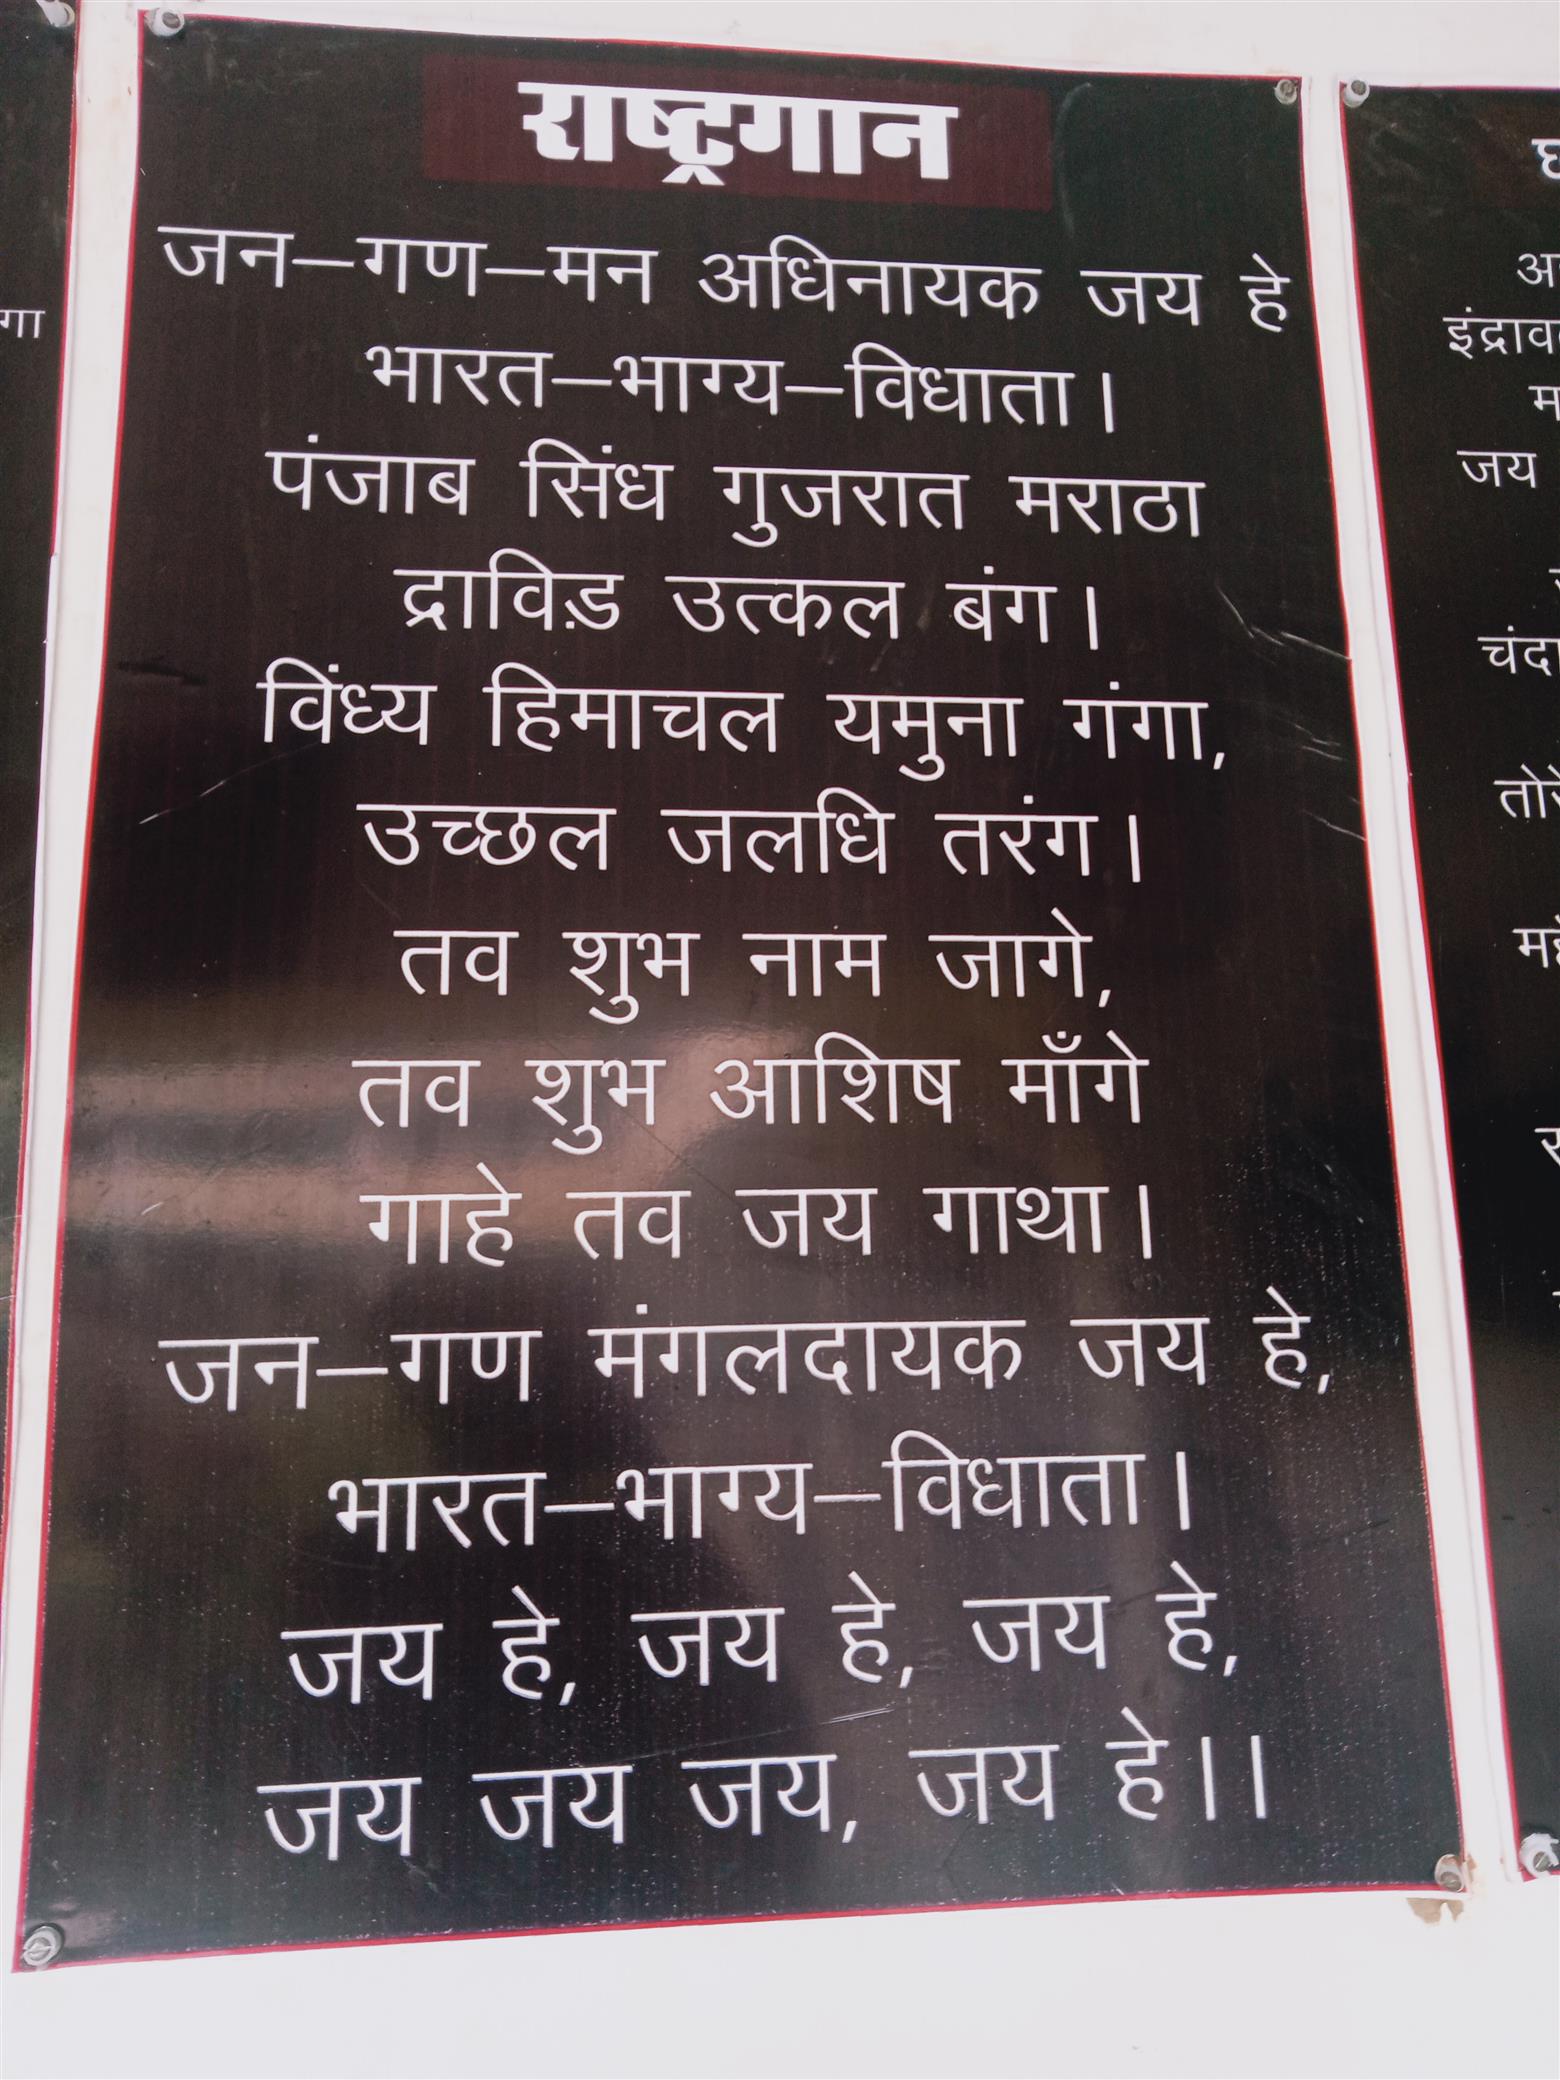 राष्ट्रगान
जन–गण–मन अधिनायक जय हे
भारत–भाग्य–विधाता।
पंजाब सिंध गुजरात मराठा
द्राविड़ उत्कल बंग।
विंध्य हिमाचल यमुना गंगा,
उच्छल जलधि तरंग।
तव शुभ नाम जागे,
तव शुभ आशिष माँगे
गाहे तव जय गाथा।
जन–गण मंगलदायक जय हे,
भारत–भाग्य–विधाता।
जय हे, जय हे, जय हे,
जय जय जय, जय हे।।
जय